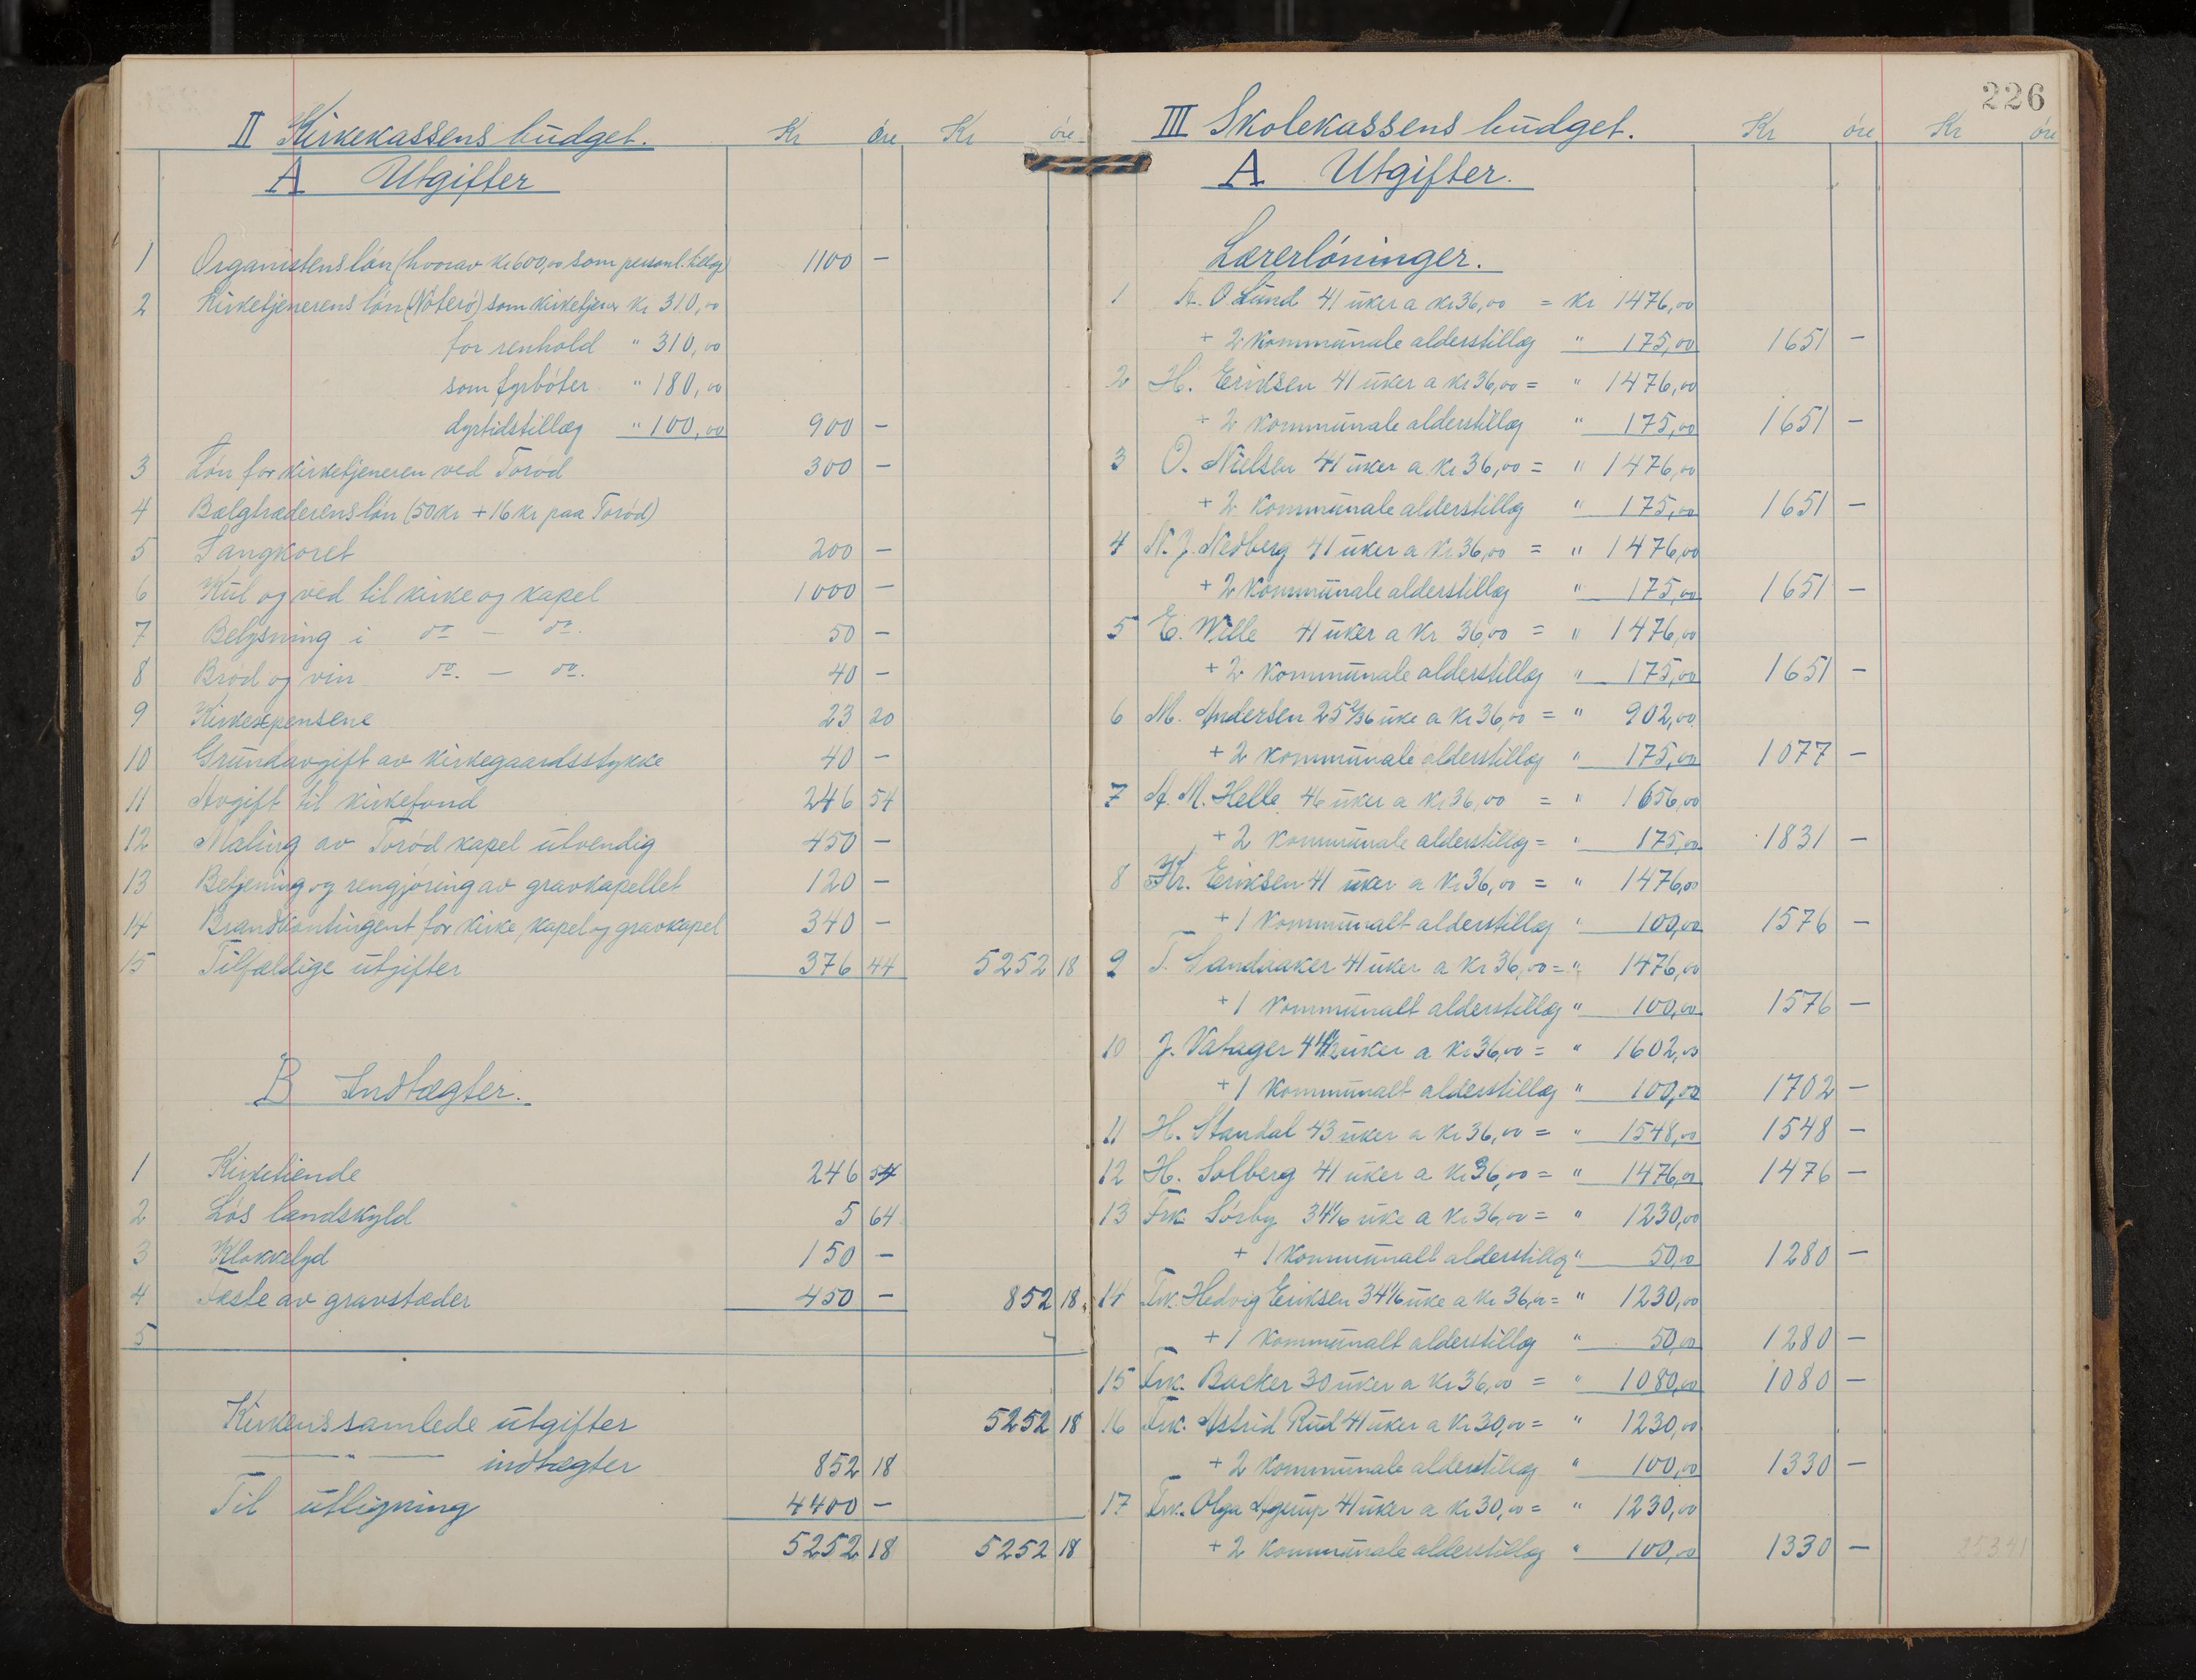 II Kirkekassens budget. Kr øre Kr øre
A Utgifter
1 Organistens løn (hvorav kr 600,00 som personl. tillæg) 1100 –
2 Kirketjenerens løn (Nøterø) som kirketjener kr 310,00
for renhold " 310,00
som fyrbøter " 180,00
dyrtidstillæg " 100,00 900 –
3 Løn for kirketjeneren ved Torød 300 –
4 Bælgtræderens løn (50 kr + 16 kr paa Torød)
5 Sangkoret 200 –
6 Kul og ved til kirke og kapel 1000 –
7 Belysning i do – do. 50 –
8 Brød og vin do. – do. 40 –
9 Kirkeexpensene 23 20
10 Grundavgift av kirkegaardsstykke 40 –
11 Avgift til kirkefond 246 54
12 Maling av Torød kapel utvendig 450 –
13 Betjening og rengjøring av gravkapellet 120 –
14 Brandkontingent for kirke, kapel og gravkapel 340 –
15 Tilfældige utgifter 376 44 5252 18
B Indtægter.
1 Kirketiende 246 54
2 Løs landskyld 5 64
3 Klokkelyd 150 –
4 Fæste av gravstæder 450 – 852 18
5
Kirkens samlede utgifter 5252 18
— " — indtægter 852 18
Til utligning 4400 –
5252 18 5252 18
226
III Skolekassens budget. Kr øre Kr øre
A Utgifter.
Lærerlønninger.
1 O. Lund 41 uker a kr 36,00 = kr 1476,00
+ 2 kommunale alderstillæg " 175,00 1651 –
2 H. Eriksen 41 uker a kr 36,00 = " 1476,00
+ 2 kommunale alderstillæg " 175,00 1651 –
3 O. Nielsen 41 uker a kr 36,00 = " 1476,00
+ 2 kommunale alderstillæg " 175,00 1651 –
4 N. J. Nedberg 41 uker a kr 36,00 = " 1476,00
+ 2 kommunale alderstillæg " 175,00 1651 –
5 E. Wille 41 uker a kr 36,00 = " 1476,00
+ 2 kommunale alderstillæg " 175,00 1651 –
6 M. Andersen 25 2/36 uke a kr 36,00 = " 902,00
+ 2 kommunale alderstillæg " 175,00 1077 –
7 A. M. Helle 46 uker a kr 36,00 = " 1656,00
+ 2 kommunale alderstillæg = " 175,00 1831 –
8 Kr. Eriksen 41 uker a kr 36,00 = " 1476,00
+ 1 kommunalt alderstillæg " 100,00 1576 –
9 T. Sandaaker 41 uker a kr 36,00 = " 1476,00
+ 1 kommunalt alderstillæg " 100,00 1576 –
10 J. Vatager 44 1/2 uker a kr 36,00 = " 1602,00
+ 1 kommunalt alderstillæg " 100,00 1702 –
11 H. Standal 43 uker a kr 36,00 = " 1548,00 1548 –
12 H. Solberg 41 uker a kr 36,00 = " 1476,00 1476 –
13 Frk. Sørby 34 1/6 uke a kr 36,00 = " 1230,00
+ 1 kommunalt alderstillæg " 50,00 1280 –
14 Frk. Hedvig Eriksen 34 1/6 uke a kr 36,00 = " 1230,00
+ 1 kommunalt alderstillæg " 50,00 1280 –
15 Frk. Backer 30 uker a kr 36,00 = " 1080,00 1080 –
16 Frk. Astrid Rud 41 uker a kr 30,00 = " 1230,00
+ 2 kommunale alderstillæg " 100,00 1330 –
17 Frk. Olga 41 uker a kr 30,00 = " 1230,00
+ 2 kommunale alderstillæg " 100,00 1330 –